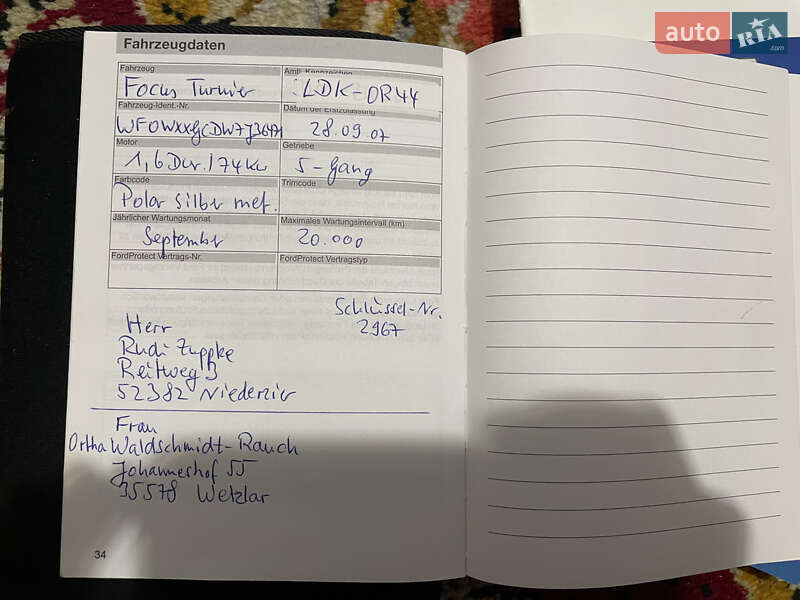 auto RIA .com
Fahrzeugdaten
Fahrzeug
Amtl. Kennzeichen
Focus Turnier
LDK-OR44
Fahrzeug-Ident.-Nr.
Datum der Erstzulassung
28.09.07
Motor
Getriebe
1,6 Dur./74 Kw
5-Gang
Farbcode
Trimcode
Polar Silber met.
Jährlicher Wartungsmonat
Maximales Wartungsintervall (km)
September
20.000
FordProtect Vertrags-Nr.
FordProtect Vertragstyp
Schlüssel-Nr.
2967
Herr
Rudi Zuppke
Reitweg 3
52382 Niederzier
Frau
Ortha Waldschmidt-Rauch
Johanneshof 55
35578 Wetzlar
34